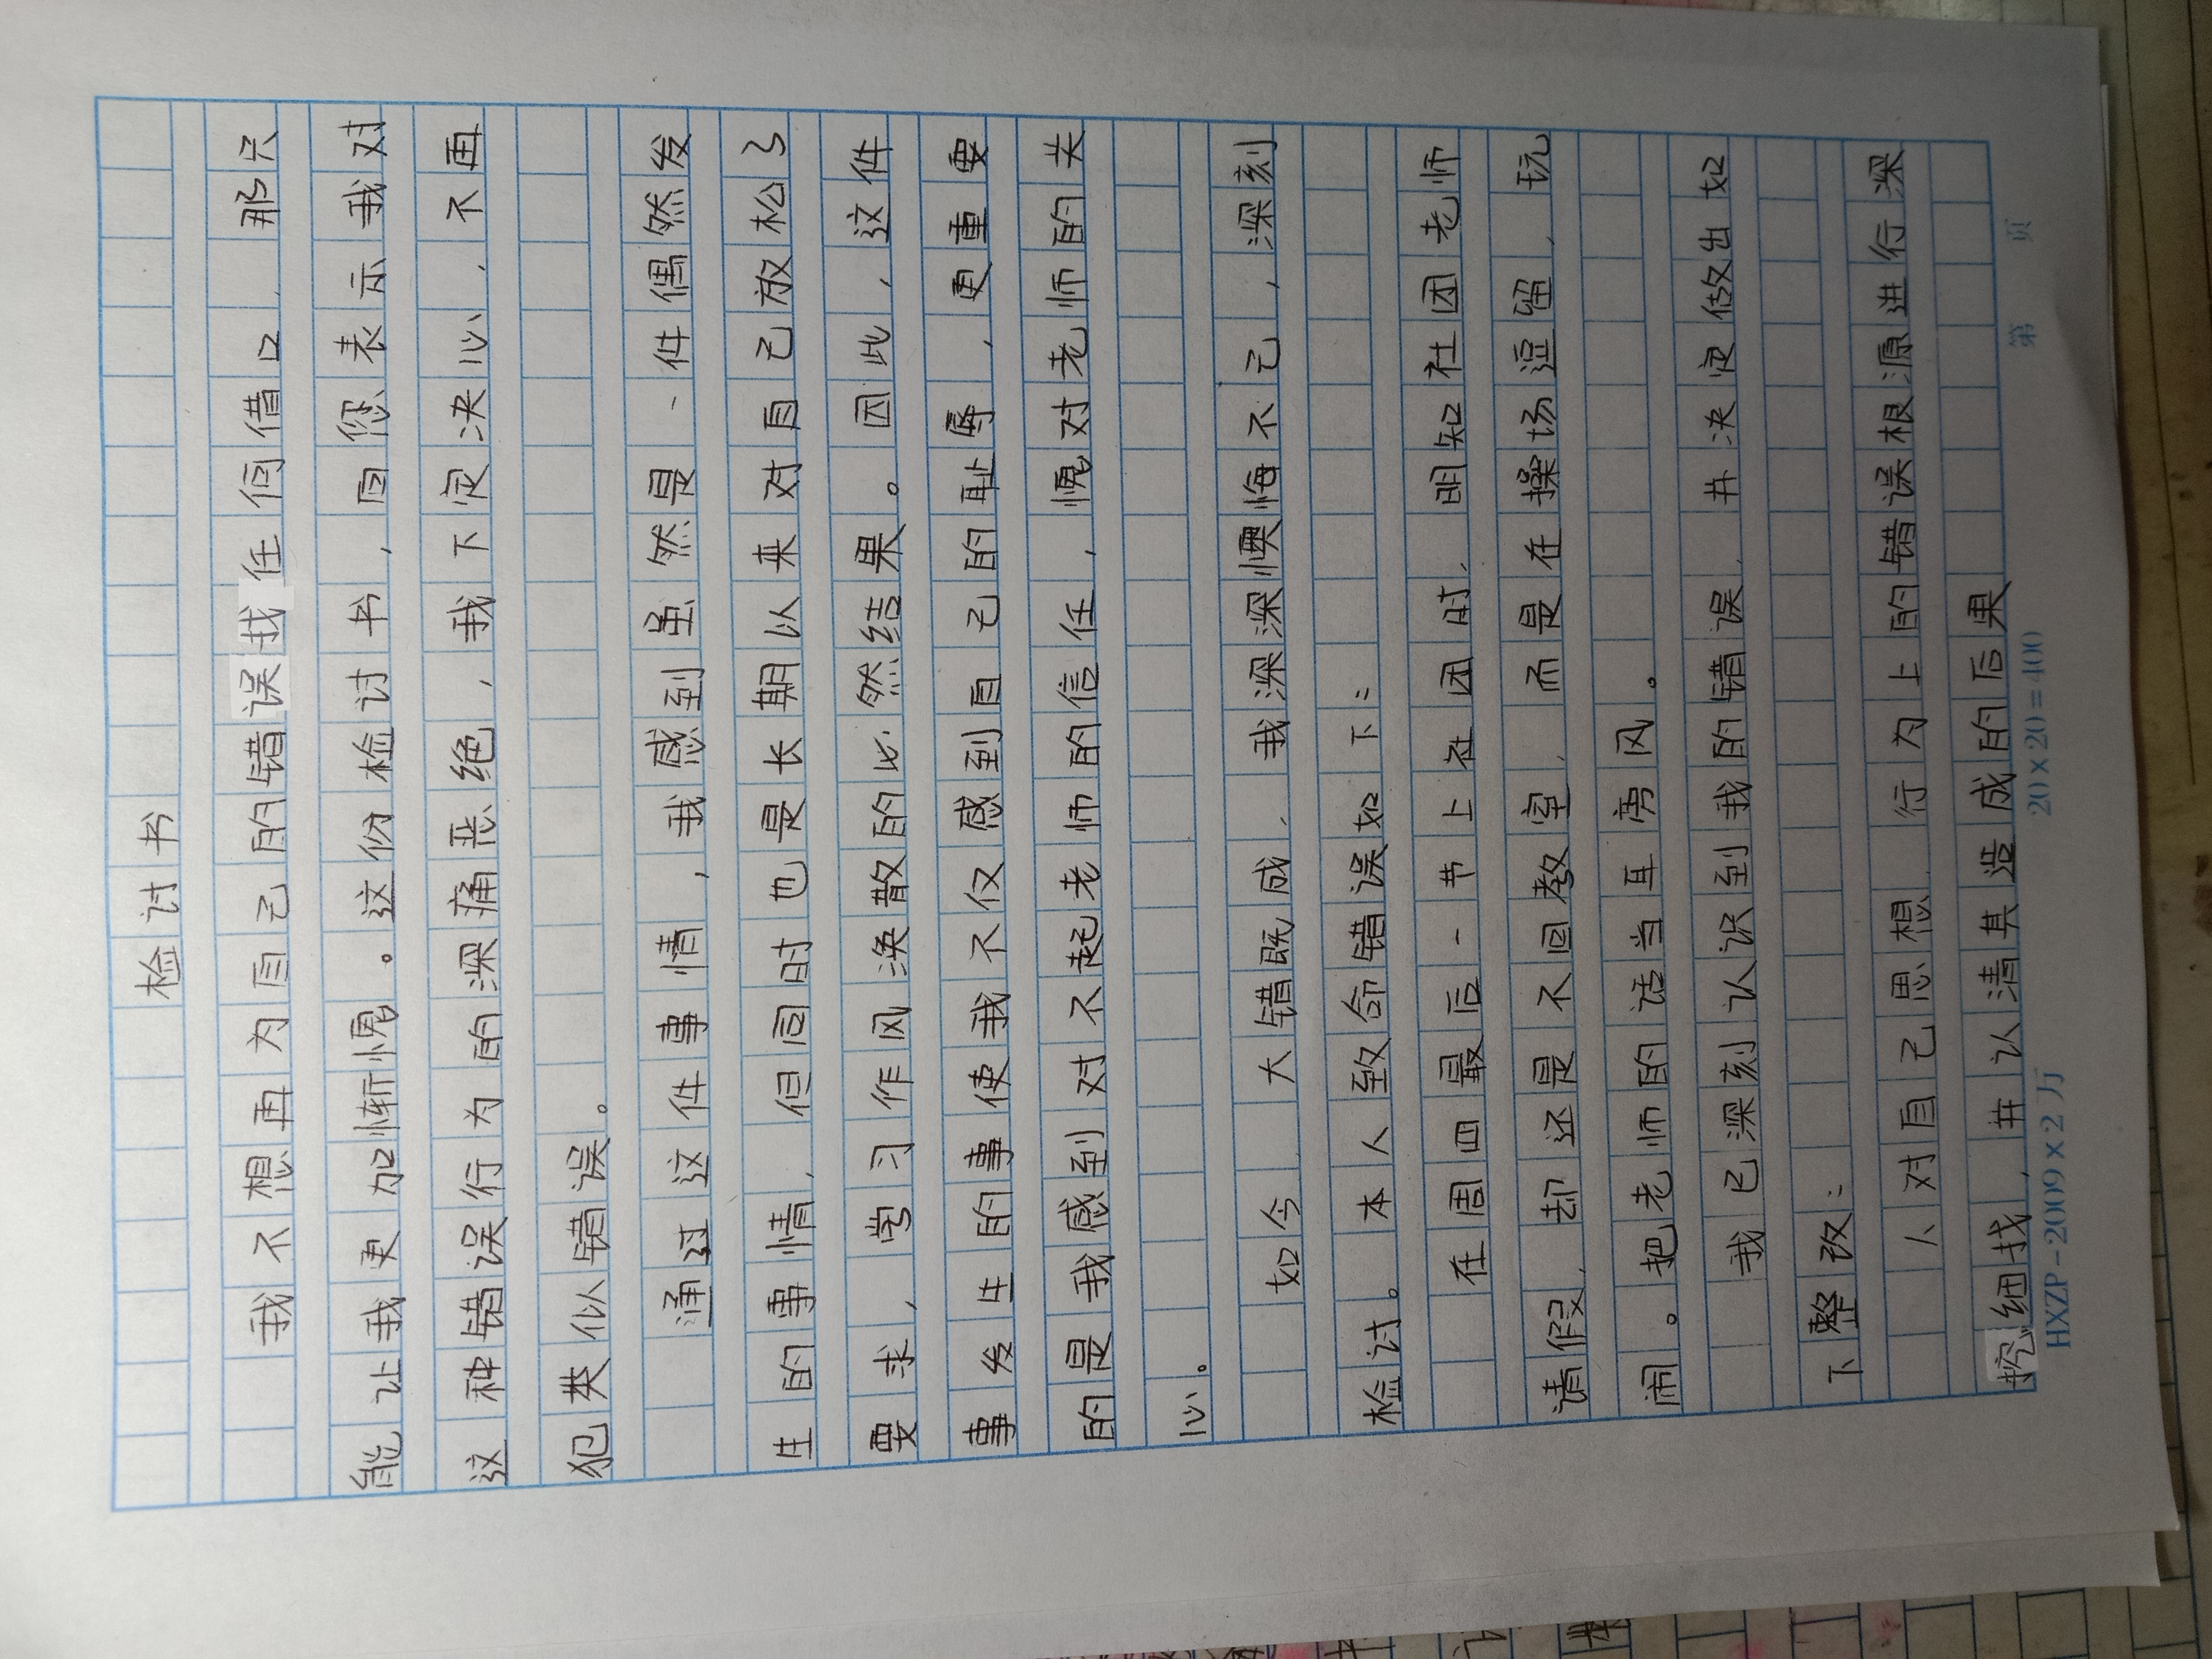 检讨书
我不想再为自己的错误找任何借口,那只
能让我更加惭愧。这份检讨书,向您表示我对
这种错误行为的深痛恶绝,我下定决心,不再
犯类似错误。
通过这件事情,我感到虽然是一件偶然发
生的事情,但同时也是长期以来对自己放松了
要求,学习作风涣散的必然结果。因此,这件
事发生的事使我不仅感到自己的耻辱,更重要
的是我感到对不起老师的信任,愧对老师的关
心。
如今大错既成,我深深懊悔不已,深刻
检讨。本人致命错误如下:
在周四最后一节上社团时,明知社团老师
请假,却还是不回教室,而是在操场逗留,玩
闹。把老师的话当耳旁风。
我已深刻认识到我的错误,并决定做出如
下整改:
1、对自己思想,行为上的错误根源进行深
挖细找,并认清其造成的后果
HXZP-2009×2万 20×20=400 第 页